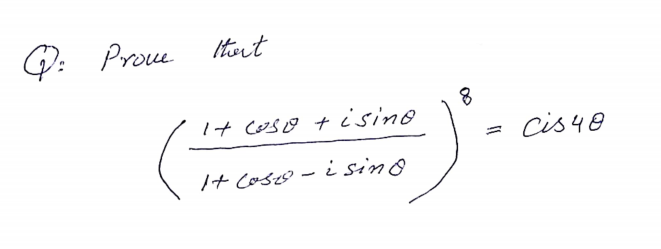 Q: Prove that
( (1 + cosθ + i sinθ) / (1 + cosθ - i sinθ) )^8 = cis 4θ